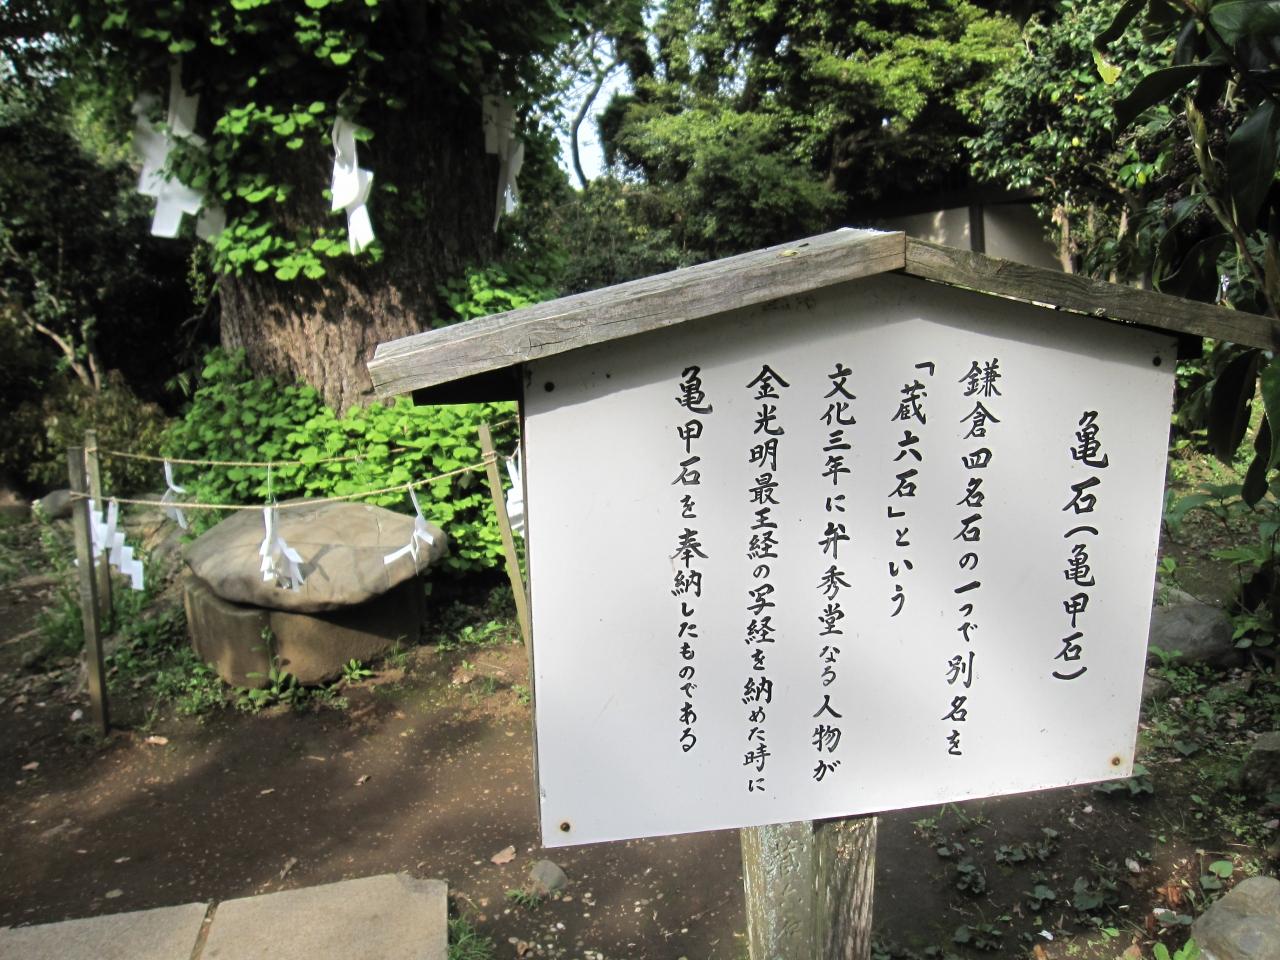 亀石（亀甲石）
鎌倉四名石の一つで別名を
「蔵六石」という
文化三年に弁秀堂なる人物が
金光明最王経の写経を納めた時に
亀甲石を奉納したものである